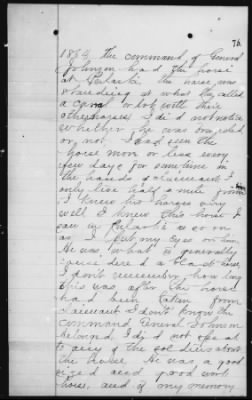 76
1863, the command of General
Johnson had the horse
at Pulaski the horse was
standing at what they called
a corral with their
other horses I did not notice
whether he was branded
or not. I had seen the
horse more or less every
few days for sometime in
the hands of claimant I
only live half a mile from
I knew his horses very
well I knew this horse I
saw in Pulaski as soon
as I put my eyes on him
He was what is generally
considered a
I don't remember how long
this was after the horse
had been taken from
claimant I don't know the
command General Johnson
belonged, I did not speak
to any of the soldiers about
the horse. He was a good
sized and good work
horse, and if my memory